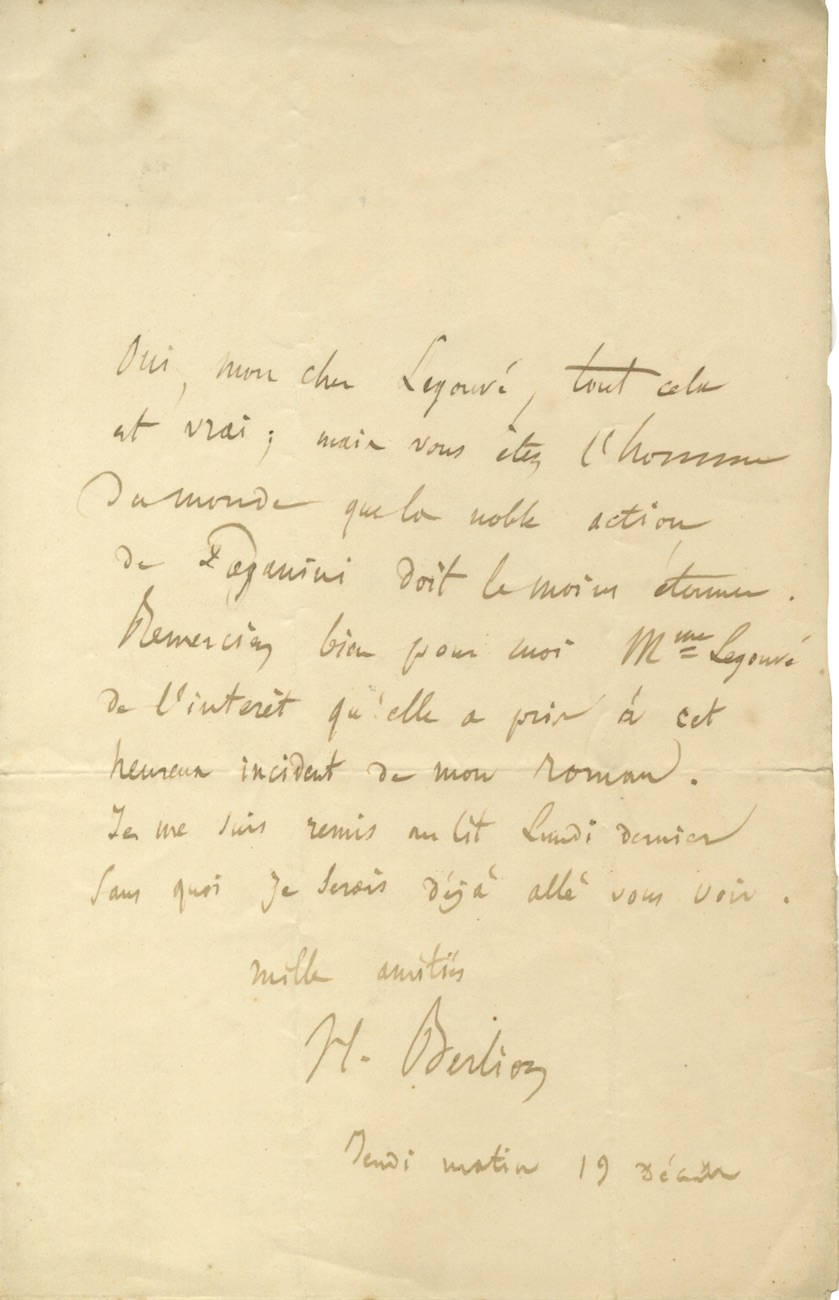 Oui, mon cher Legouvé, tout cela
est vrai ; mais vous êtes l'homme
du monde que la noble action
de Paganini doit le moins étonner.
Remerciez bien pour moi Mme Legouvé
de l'interêt qu'elle a pris à cet
heureux incident de mon roman.
Je me suis remis au lit Lundi dernier
Sans quoi Je serais déjà allé vous voir.
mille amitiés
H. Berlioz
Jeudi matin 19